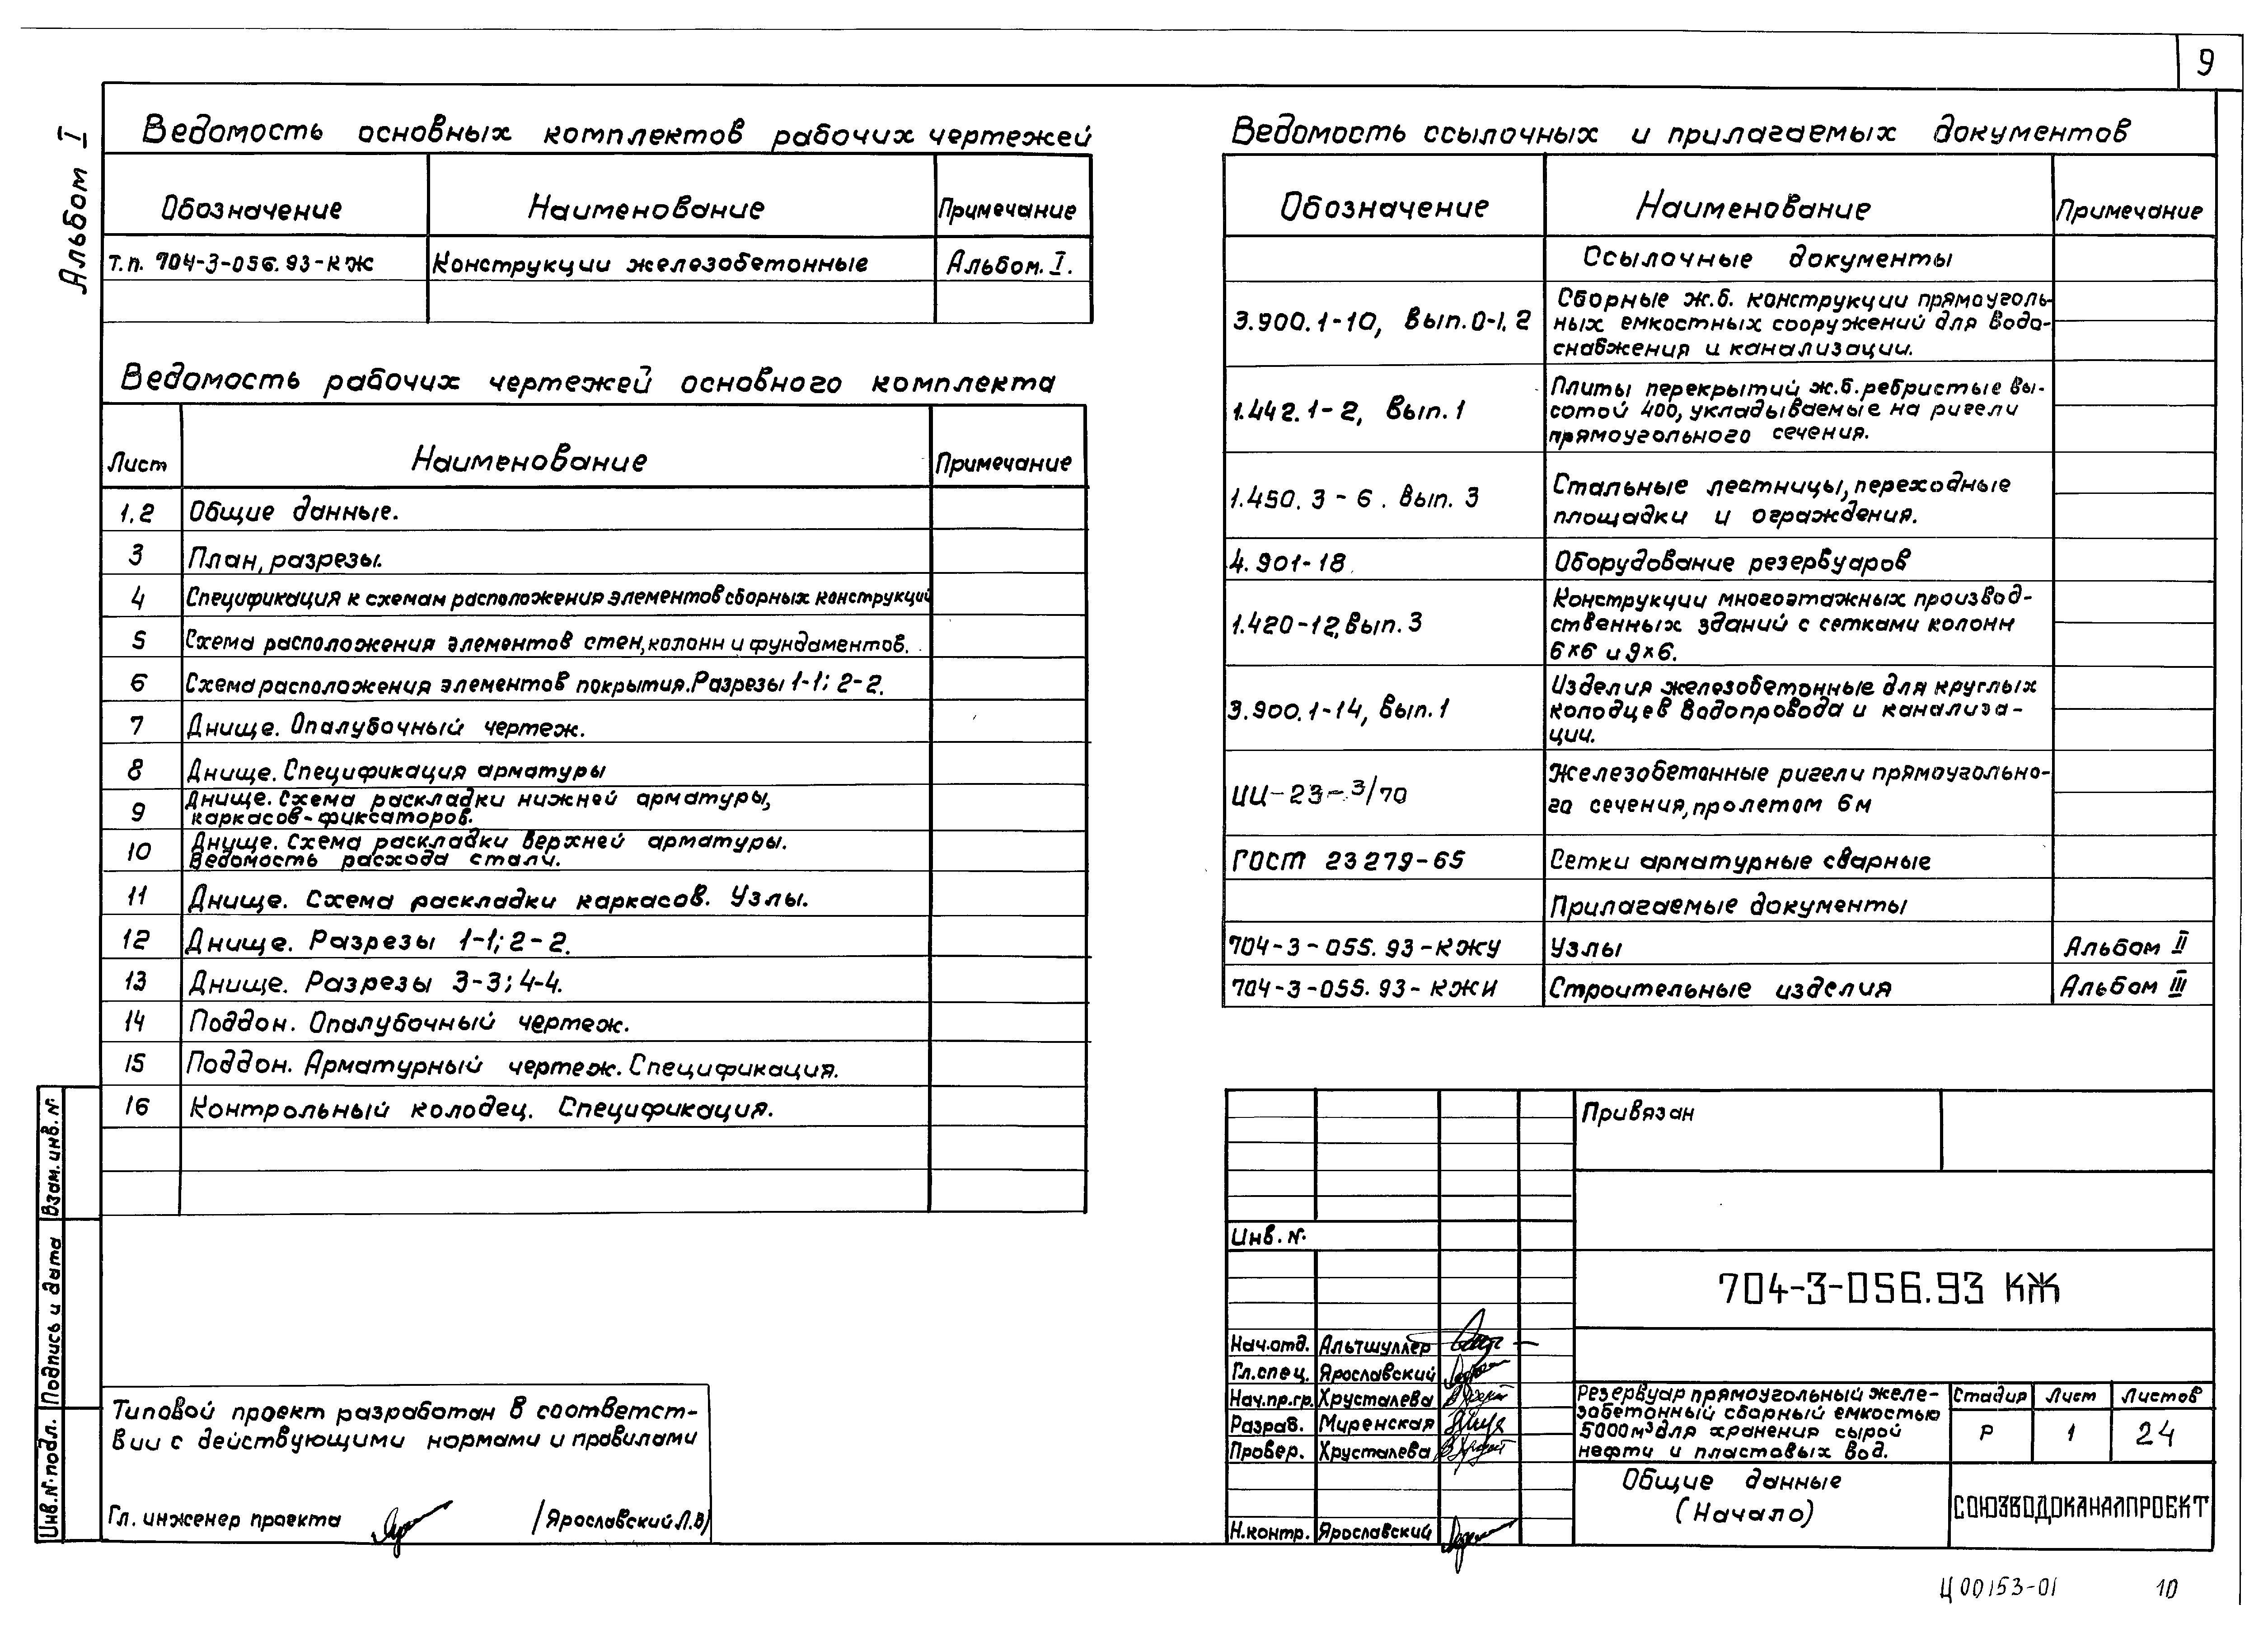 9
Альбом I
Ведомость основных комплектов рабочих чертежей
Обозначение Наименование Примечание
т.п. 704-3-056.93-КЖ Конструкции железобетонные Альбом. I.
Ведомость рабочих чертежей основного комплекта
Лист Наименование Примечание
1.2 Общие данные.
3 План, разрезы.
4 Спецификация к схемам расположения элементов сборных конструкций
5 Схема расположения элементов стен, колонн и фундаментов.
6 Схема расположения элементов покрытия. Разрезы 1-1; 2-2.
7 Днище. Опалубочный чертеж.
8 Днище. Спецификация арматуры
9 Днище. Схема раскладки нижней арматуры,
каркасов-фиксаторов.
10 Днище. Схема раскладки верхней арматуры.
Ведомость расхода стали.
11 Днище. Схема раскладки каркасов. Узлы.
12 Днище. Разрезы 1-1; 2-2.
13 Днище. Разрезы 3-3; 4-4.
14 Поддон. Опалубочный чертеж.
15 Поддон. Арматурный чертеж. Спецификация.
16 Контрольный колодец. Спецификация.
Типовой проект разработан в соответст-
вии с действующими нормами и правилами
Гл. инженер проекта /Ярославский Л.В/
Взам. инв. №
Подпись и дата
Инв. № подл.
Ведомость ссылочных и прилагаемых документов
Обозначение Наименование Примечание
Ссылочные документы
3.900.1-10, Вып. 0-1, 2 Сборные ж.б. конструкции прямоуголь-
ных емкостных сооружений для водо-
снабжения и канализации.
1.442.1-2, Вып. 1 Плиты перекрытий ж.б. ребристые вы-
сотой 400, укладываемые на ригели
прямоугольного сечения.
1.450.3-6. Вып. 3 Стальные лестницы, переходные
площадки и ограждения.
4.901-18. Оборудование резервуаров
1.420-12, вып. 3 Конструкции многоэтажных производ-
ственных зданий с сетками колонн
6×6 и 9×6.
3.900.1-14, Вып. 1 Изделия железобетонные для круглых
колодцев водопровода и канализа-
ции.
ИИ-23-3/70 Железобетонные ригели прямоугольно-
го сечения, пролетом 6м
ГОСТ 23279-65 Сетки арматурные сварные
Прилагаемые документы
704-3-055.93-КЖУ Узлы Альбом II
704-3-055.93-КЖИ Строительные изделия Альбом III
Привязан
Инв. №
704-3-056.93 КЖ
Нач.отд. Альтшуллер
Гл.спец. Ярославский
Нач.пр.гр. Хрусталева
Разраб. Миренская
Провер. Хрусталева
Н.контр. Ярославский
Резервуар прямоугольный желе-
забетонный сборный емкостью
5000м³ для хранения сырой
нефти и пластовых вод.
Стадия Лист Листов
Р 1 24
Общие данные
(Начало)
СОЮЗВОДОКАНАЛПРОЕКТ
Ц00153-01 10